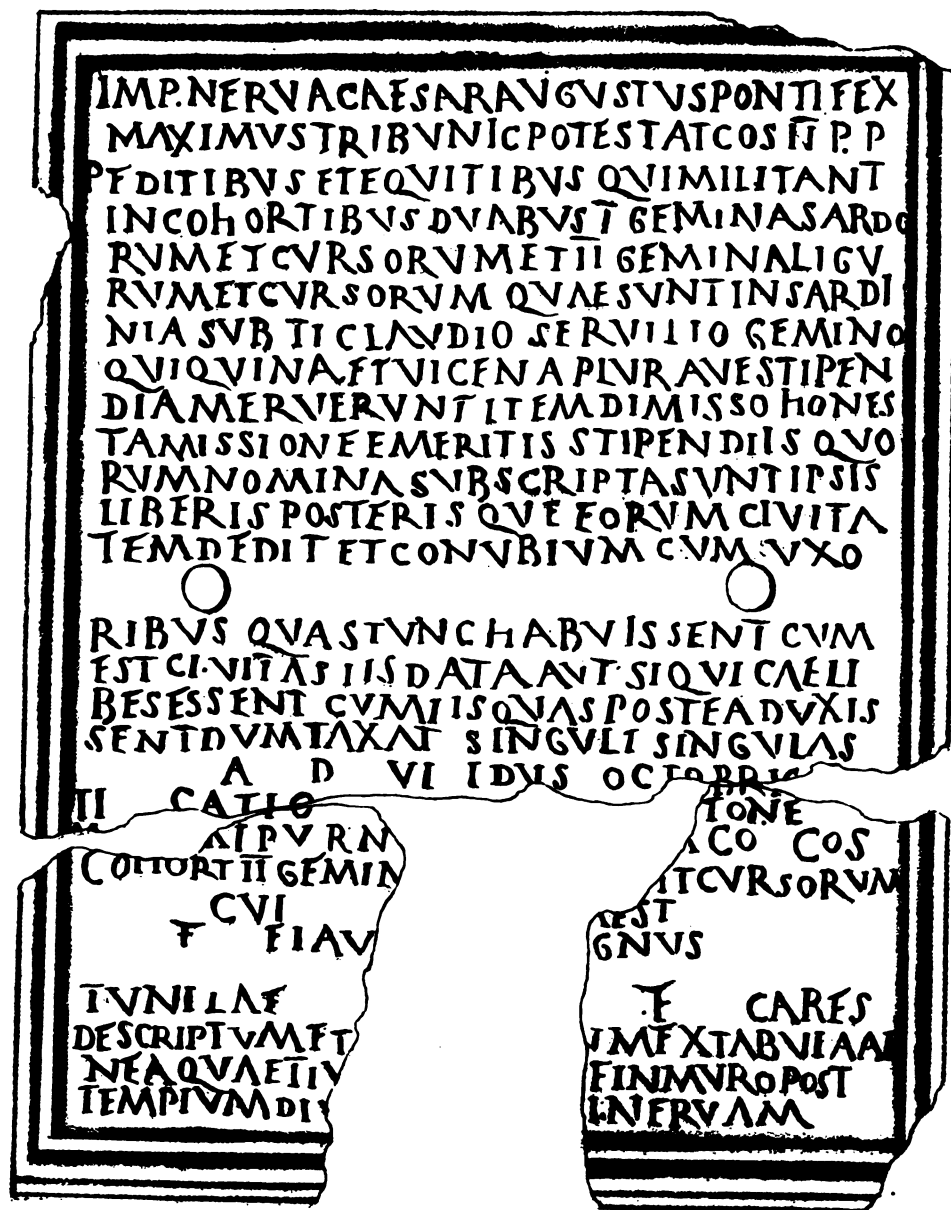 IMP.NERVACAESARAVGVSTVSPONTIFEX
MAXIMVSTRIBVNICPOTESTATCOSII P.P
PEDITIBVSETEQVITIBVS QVIMILITANT
INCOHORTIBVSDVABVSI GEMINASARDO
RVMETCVRSORVMETII GEMINALIGV
RVMETCVRSORVM QVAESVNTINSARDI
NIASVB TICLAVDIO SERVILIO GEMINO
QVIQVINAETVICENAPLVRAVESTIPEN
DIAMERVERVNTITEMDIMISSOHONES
TAMISSIONEEMERITIS STIPENDIIS QVO
RVMNOMINASVBSCRIPTASVNTIPSIS
LIBERIS POSTERISQVEEORVMCIVITA
TEMDEDITETCONVBIVMCVMVXO
RIBVS QVASTVNCHABVISSENTCVM
ESTCI·VITASIISDATAAVT·SIQVICAELI
BESESSENT CVMIISQVASPOSTEADVXIS
SENTDVMTAXAT SINGVLI SINGVLAS
A D VI IDVS OCTOBRIS
TI CATIO TONE
M ALPVRN CO COS
COHORTIIGEMIN ITCVRSORVM
CVI EST
F FIAV GNVS
TVNILAE F CARES
DESCRIPTVMET VMEXTABVLAAE
NEAQVAETIV FINMVROPOST
TEMPLVMDIV NERVAM